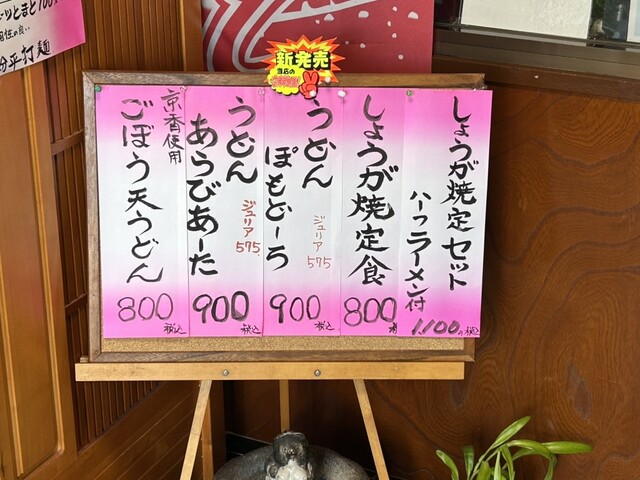 新発売
当店の
しょうが焼定セット
ハーフラーメン付
1,100円税込
しょうが焼定食
800
うどん
ぽもどーろ
ジュリア
575
900
税込
うどん
あらびあーた
ジュリア
575
900
税込
京香使用
ごぼう天うどん
800
税込
平打麺